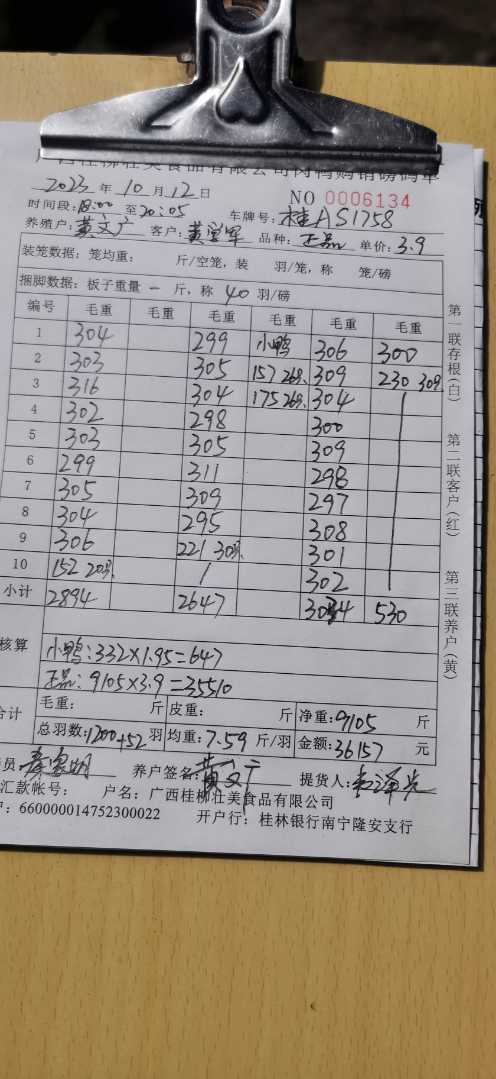 2023 年 10 月 12 日 NO 0006134
时间段: 18:00 至 20:05 车牌号: 桂AS1758
养殖户: 黄文广 客户: 黄堂军 品种: 正品 单价: 3.9
装笼数据: 笼均重: 斤/空笼, 装 羽/笼, 称 笼/磅
捆脚数据: 板子重量 一 斤, 称 40 羽/磅
编号 毛重 毛重 毛重 毛重 毛重 毛重
1 304 299 小鸭 306 300
2 303 305 157 26羽. 309 230 30羽
3 316 304 175 26羽. 304
4 302 298 300
5 303 305 309
6 299 311 298
7 305 309 297
8 304 295 308
9 306 221 30羽 301
10 152 20羽 / 302
小计 2894 2647 3034 530
核算 小鸭: 332×1.95=647
正品: 9105×3.9=35510
合计 毛重: 斤 皮重: 斤 净重: 9105 斤
总羽数: 1200+52 羽 均重: 7.59 斤/羽 金额: 36157 元
员 养户签名: 黄文广 提货人:
汇款帐号: 户名: 广西桂柳壮美食品有限公司
: 660000014752300022 开户行: 桂林银行南宁隆安支行
第一联存根(白)
第二联客户(红)
第三联养户(黄)